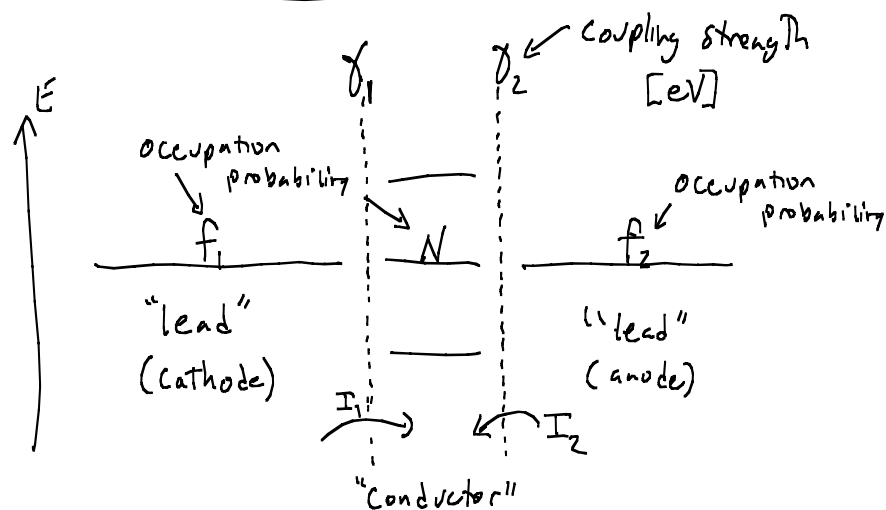 γ₁
γ₂
coupling strength
[eV]
E
occupation
probability
occupation
probability
f₁
N
f₂
"lead"
(cathode)
"lead"
(anode)
I₁
I₂
"conductor"